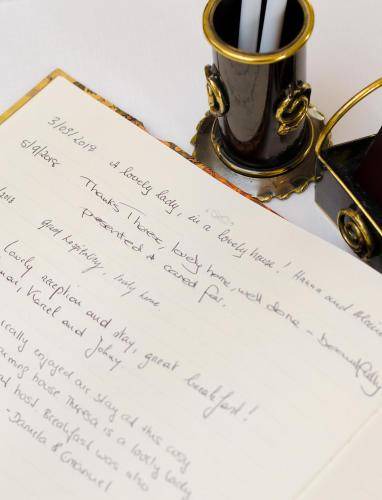 3/09/2018
A lovely lady, in a lovely house! Hanna and
5/9/2018
Thanks Therese, lovely home, well done - beautifully
presented & cared for.
great hospitality, lovely home.
Lovely reception and stay, great breakfast!
Karel and Johny
enjoyed our stay at this cosy
house Theresa is a lovely lady
host. Breakfast was also
- Daniela & Emanuel